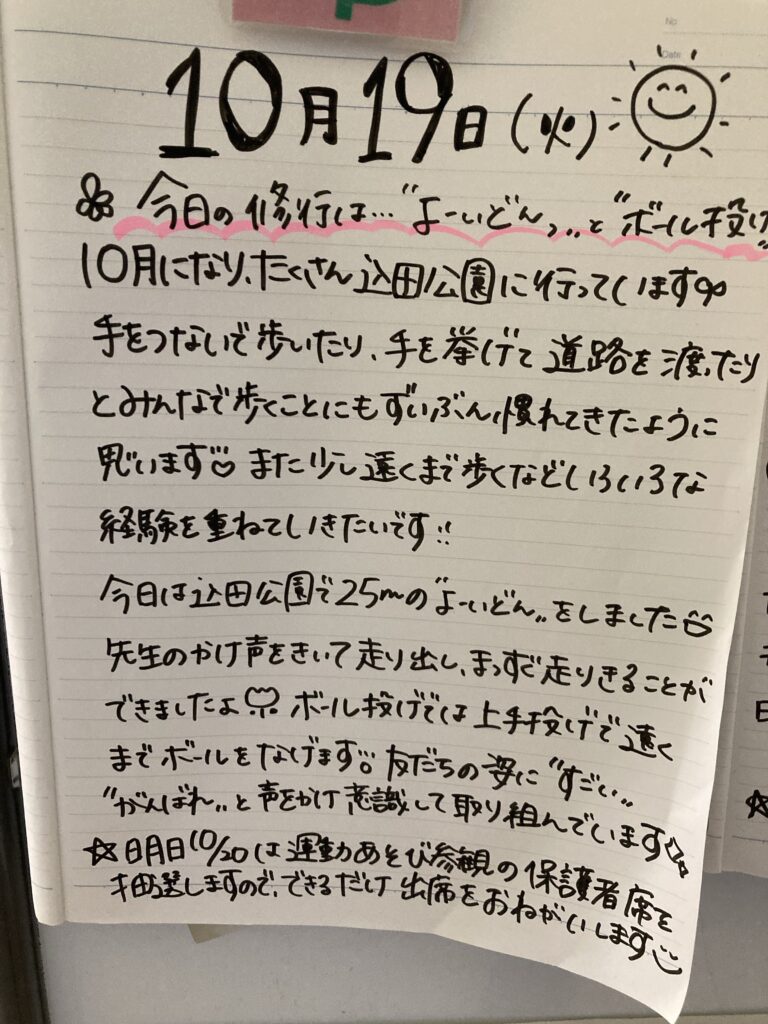 No
Date
10月19日(火)
今日の修行は…"よーいどんっ"と"ボール投げ"
10月になり、たくさん込田公園に行っています
手をつないで歩いたり、手を挙げて道路を渡ったり
とみんなで歩くことにもずいぶん慣れてきたように
思います また少し遠くまで歩くなどいろいろな
経験を重ねていきたいです!!
今日は込田公園で25mの"よーいどん"をしました
先生のかけ声をきいて走り出し、まっすぐ走りきることが
できましたよ ボール投げでは上手投げで遠く
までボールをなげます 友だちの姿に"すごい"
"がんばれ"と声をかけ意識して取り組んでいます
☆明日10/20は運動あそび参観の保護者席を
抽選しますので、できるだけ出席をおねがいします